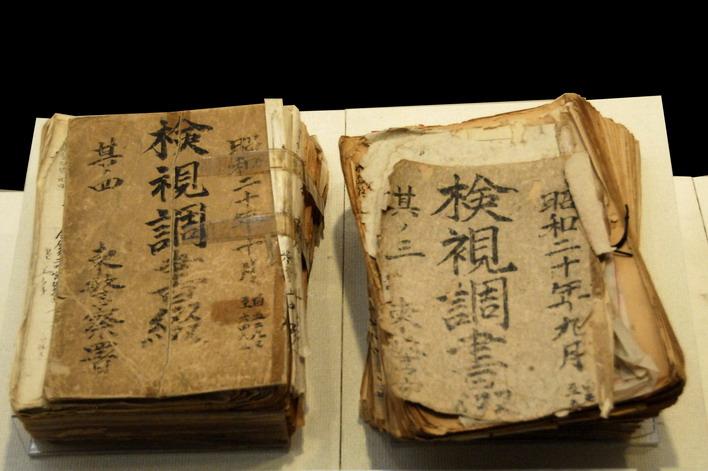 昭和二十年十月
検視調書綴
其四 東警察署
昭和二十年九月
検視調書
其ノ三 東